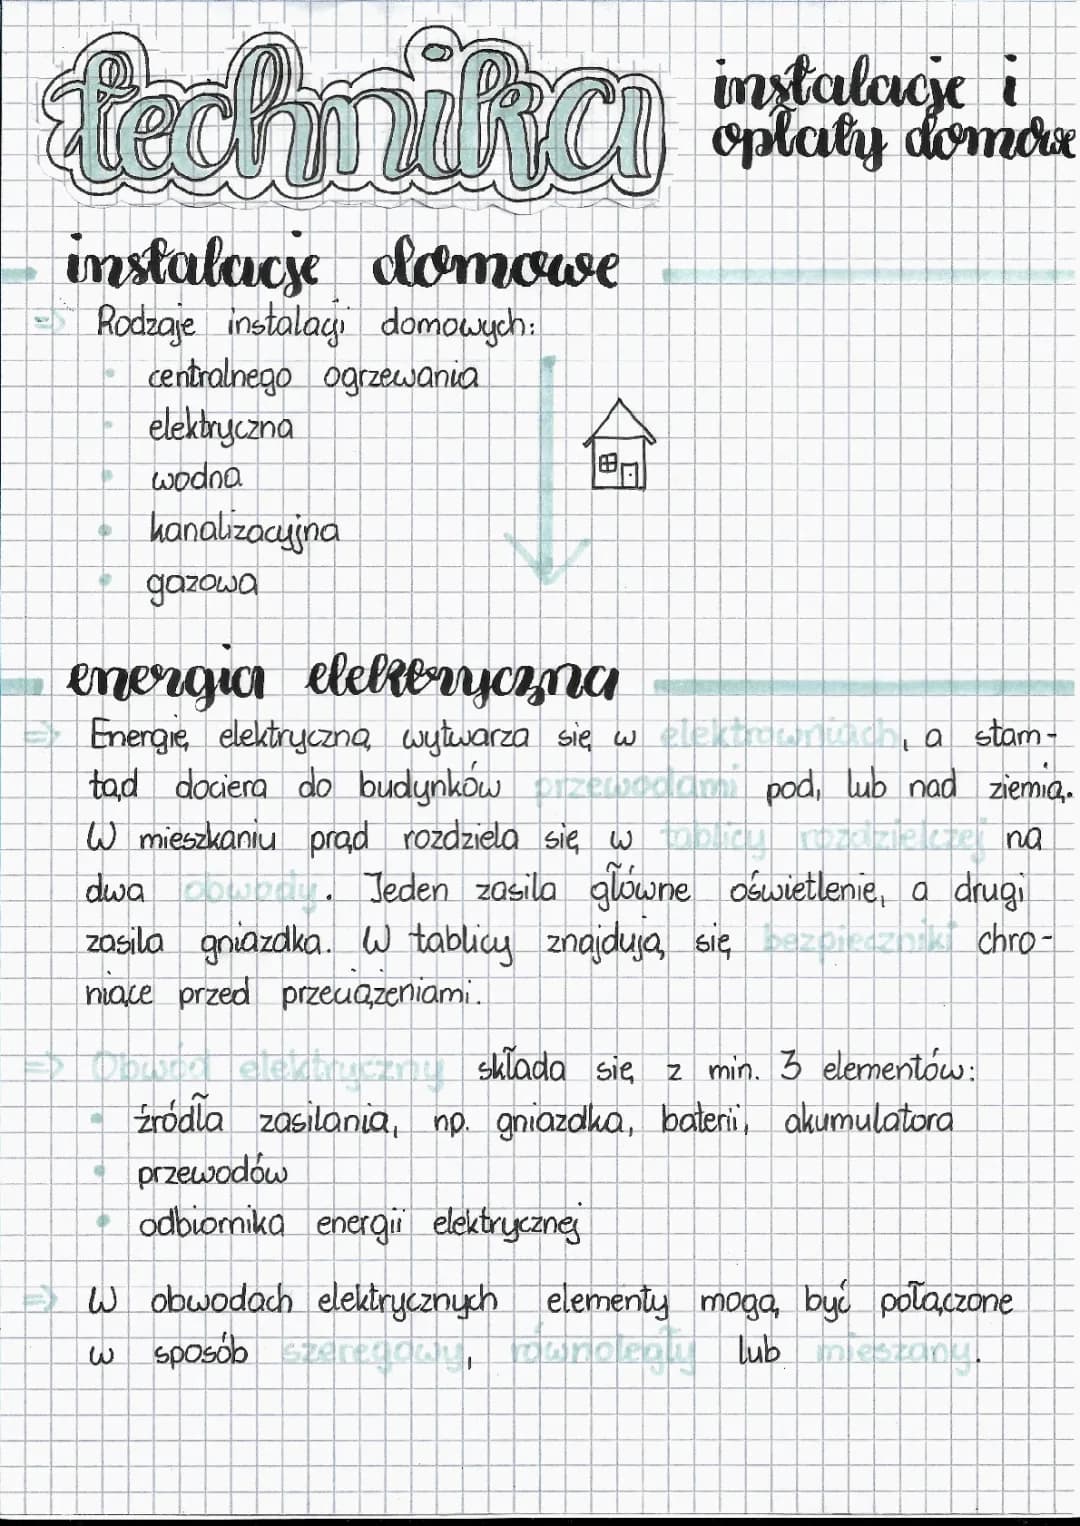 technika
instalacje i
opłaty domowe
instalacje domowe
=> Rodzaje instalacji domowych:
• centralnego ogrzewania
• elektryczna
• wodna
• kanalizacyjna
• gazowa
energia elektryczna
=> Energię elektryczną wytwarza się w elektrowniach, a stam-
tąd dociera do budynków przewodami pod, lub nad ziemią.
W mieszkaniu prąd rozdziela się w tablicy rozdzielczej na
dwa obwody. Jeden zasila główne oświetlenie, a drugi
zasila gniazdka. W tablicy znajdują się bezpieczniki chro-
niące przed przeciążeniami.
=> Obwód elektryczny składa się z min. 3 elementów:
• źródła zasilania, np. gniazdka, baterii, akumulatora
• przewodów
• odbiornika energii elektrycznej
=> W obwodach elektrycznych elementy mogą być połączone
w sposób szeregowy, równoległy lub mieszany.